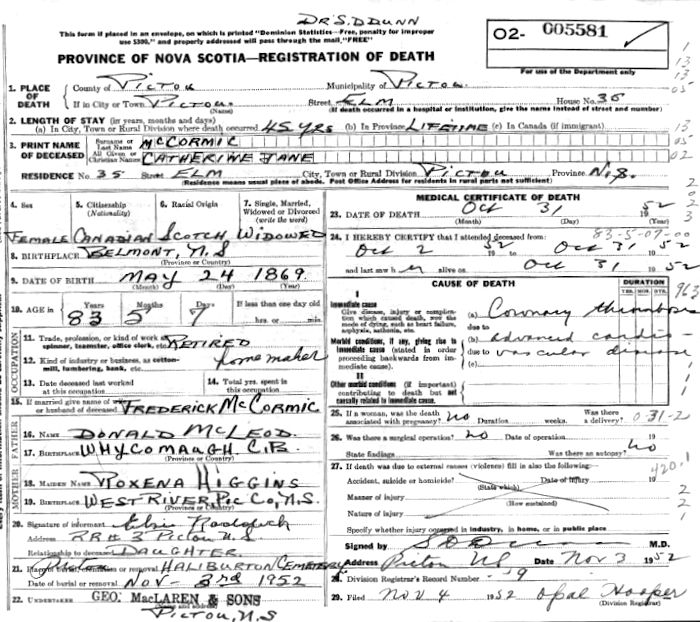 DR S.D DUNN
This form if placed in an envelope, on which is printed "Dominion Statistics—Free, penalty for improper use $300," and properly addressed will pass through the mail, "FREE"
02- 005581
For use of the Department only
PROVINCE OF NOVA SCOTIA—REGISTRATION OF DEATH
1. PLACE OF DEATH
County of Pictou Municipality of Pictou
If in City or Town Pictou (Name) Street ELM House No. 35
(If death occurred in a hospital or institution, give the name instead of street and number)
2. LENGTH OF STAY (in years, months and days)
(a) In City, Town or Rural Division where death occurred 45 yrs (b) In Province LIFETIME (c) In Canada (if immigrant)
3. PRINT NAME OF DECEASED
Surname or Last Name McCORMIC
All Given or Christian Names CATHERINE JANE
RESIDENCE No. 35 Street ELM City, Town or Rural Division Pictou Province N.S.
(Residence means usual place of abode. Post Office Address for residents in rural parts not sufficient)
4. Sex 5. Citizenship (Nationality) 6. Racial Origin 7. Single, Married, Widowed or Divorced (write the word)
FEMALE CANADIAN SCOTCH WIDOWED
8. BIRTHPLACE BELMONT, N.S
(Province or Country)
9. DATE OF BIRTH MAY 24 1869
(Month) (Day) (Year)
10. AGE in Years Months Days If less than one day old
83 5 7 hrs. or min.
OCCUPATION
11. Trade, profession, or kind of work as spinner, teamster, office clerk, etc. RETIRED
12. Kind of industry or business, as cotton-mill, lumbering, bank, etc. home maker
13. Date deceased last worked at this occupation
14. Total yrs. spent in this occupation
15. If married give name of wife or husband of deceased FREDERICK McCORMIC
FATHER
16. NAME DONALD McLEOD.
17. BIRTHPLACE WHYCOMAAGH, C.B.
(Province or Country)
MOTHER
18. MAIDEN NAME ROXENA HIGGINS
19. BIRTHPLACE WEST RIVER, PIC CO, N.S.
(Province or Country)
20. Signature of informant
Address RR# 3 PICTOU N.S
Relationship to deceased DAUGHTER
21. Place of burial, cremation or removal HALIBURTON CEMETERY
Date of burial or removal NOV- 3rd 1952
22. UNDERTAKER GEO. MacLAREN & SONS
(Name and address)
PICTOU, N.S
MEDICAL CERTIFICATE OF DEATH
23. DATE OF DEATH Oct 31 1952
(Month) (Day) (Year)
83-5-07-00
24. I HEREBY CERTIFY that I attended deceased from:
Oct 2 1952 to Oct 31 1952
and last saw her alive on Oct 31 1952
CAUSE OF DEATH
DURATION
YRS. MOS. DYS.
963
I
Immediate cause
Give disease, injury or complication which caused death, not the mode of dying, such as heart failure, asphyxia, asthenia, etc.
(a) Coronary thrombosis
due to
Morbid conditions, if any, giving rise to immediate cause (stated in order proceeding backwards from immediate cause).
(b) advanced cardio
due to vascular disease
(c)
II
Other morbid conditions (if important) contributing to death but not causally related to immediate cause.
25. If a woman, was the death associated with pregnancy? No Duration weeks. Was there a delivery?
0-31-2
26. Was there a surgical operation? No Date of operation 19
State findings Was there an autopsy? No
27. If death was due to external causes (violence) fill in also the following:
420.1
Accident, suicide or homicide? Date of injury 19
(State which)
Manner of injury
(How sustained)
Nature of injury
Specify whether injury occurred in industry, in home, or in public place
Signed by S D Dunn M.D.
Address Pictou NS Date Nov 3 1952
28. Division Registrar's Record Number 9
29. Filed Nov 4 1952 Opal Hooper
(Division Registrar)